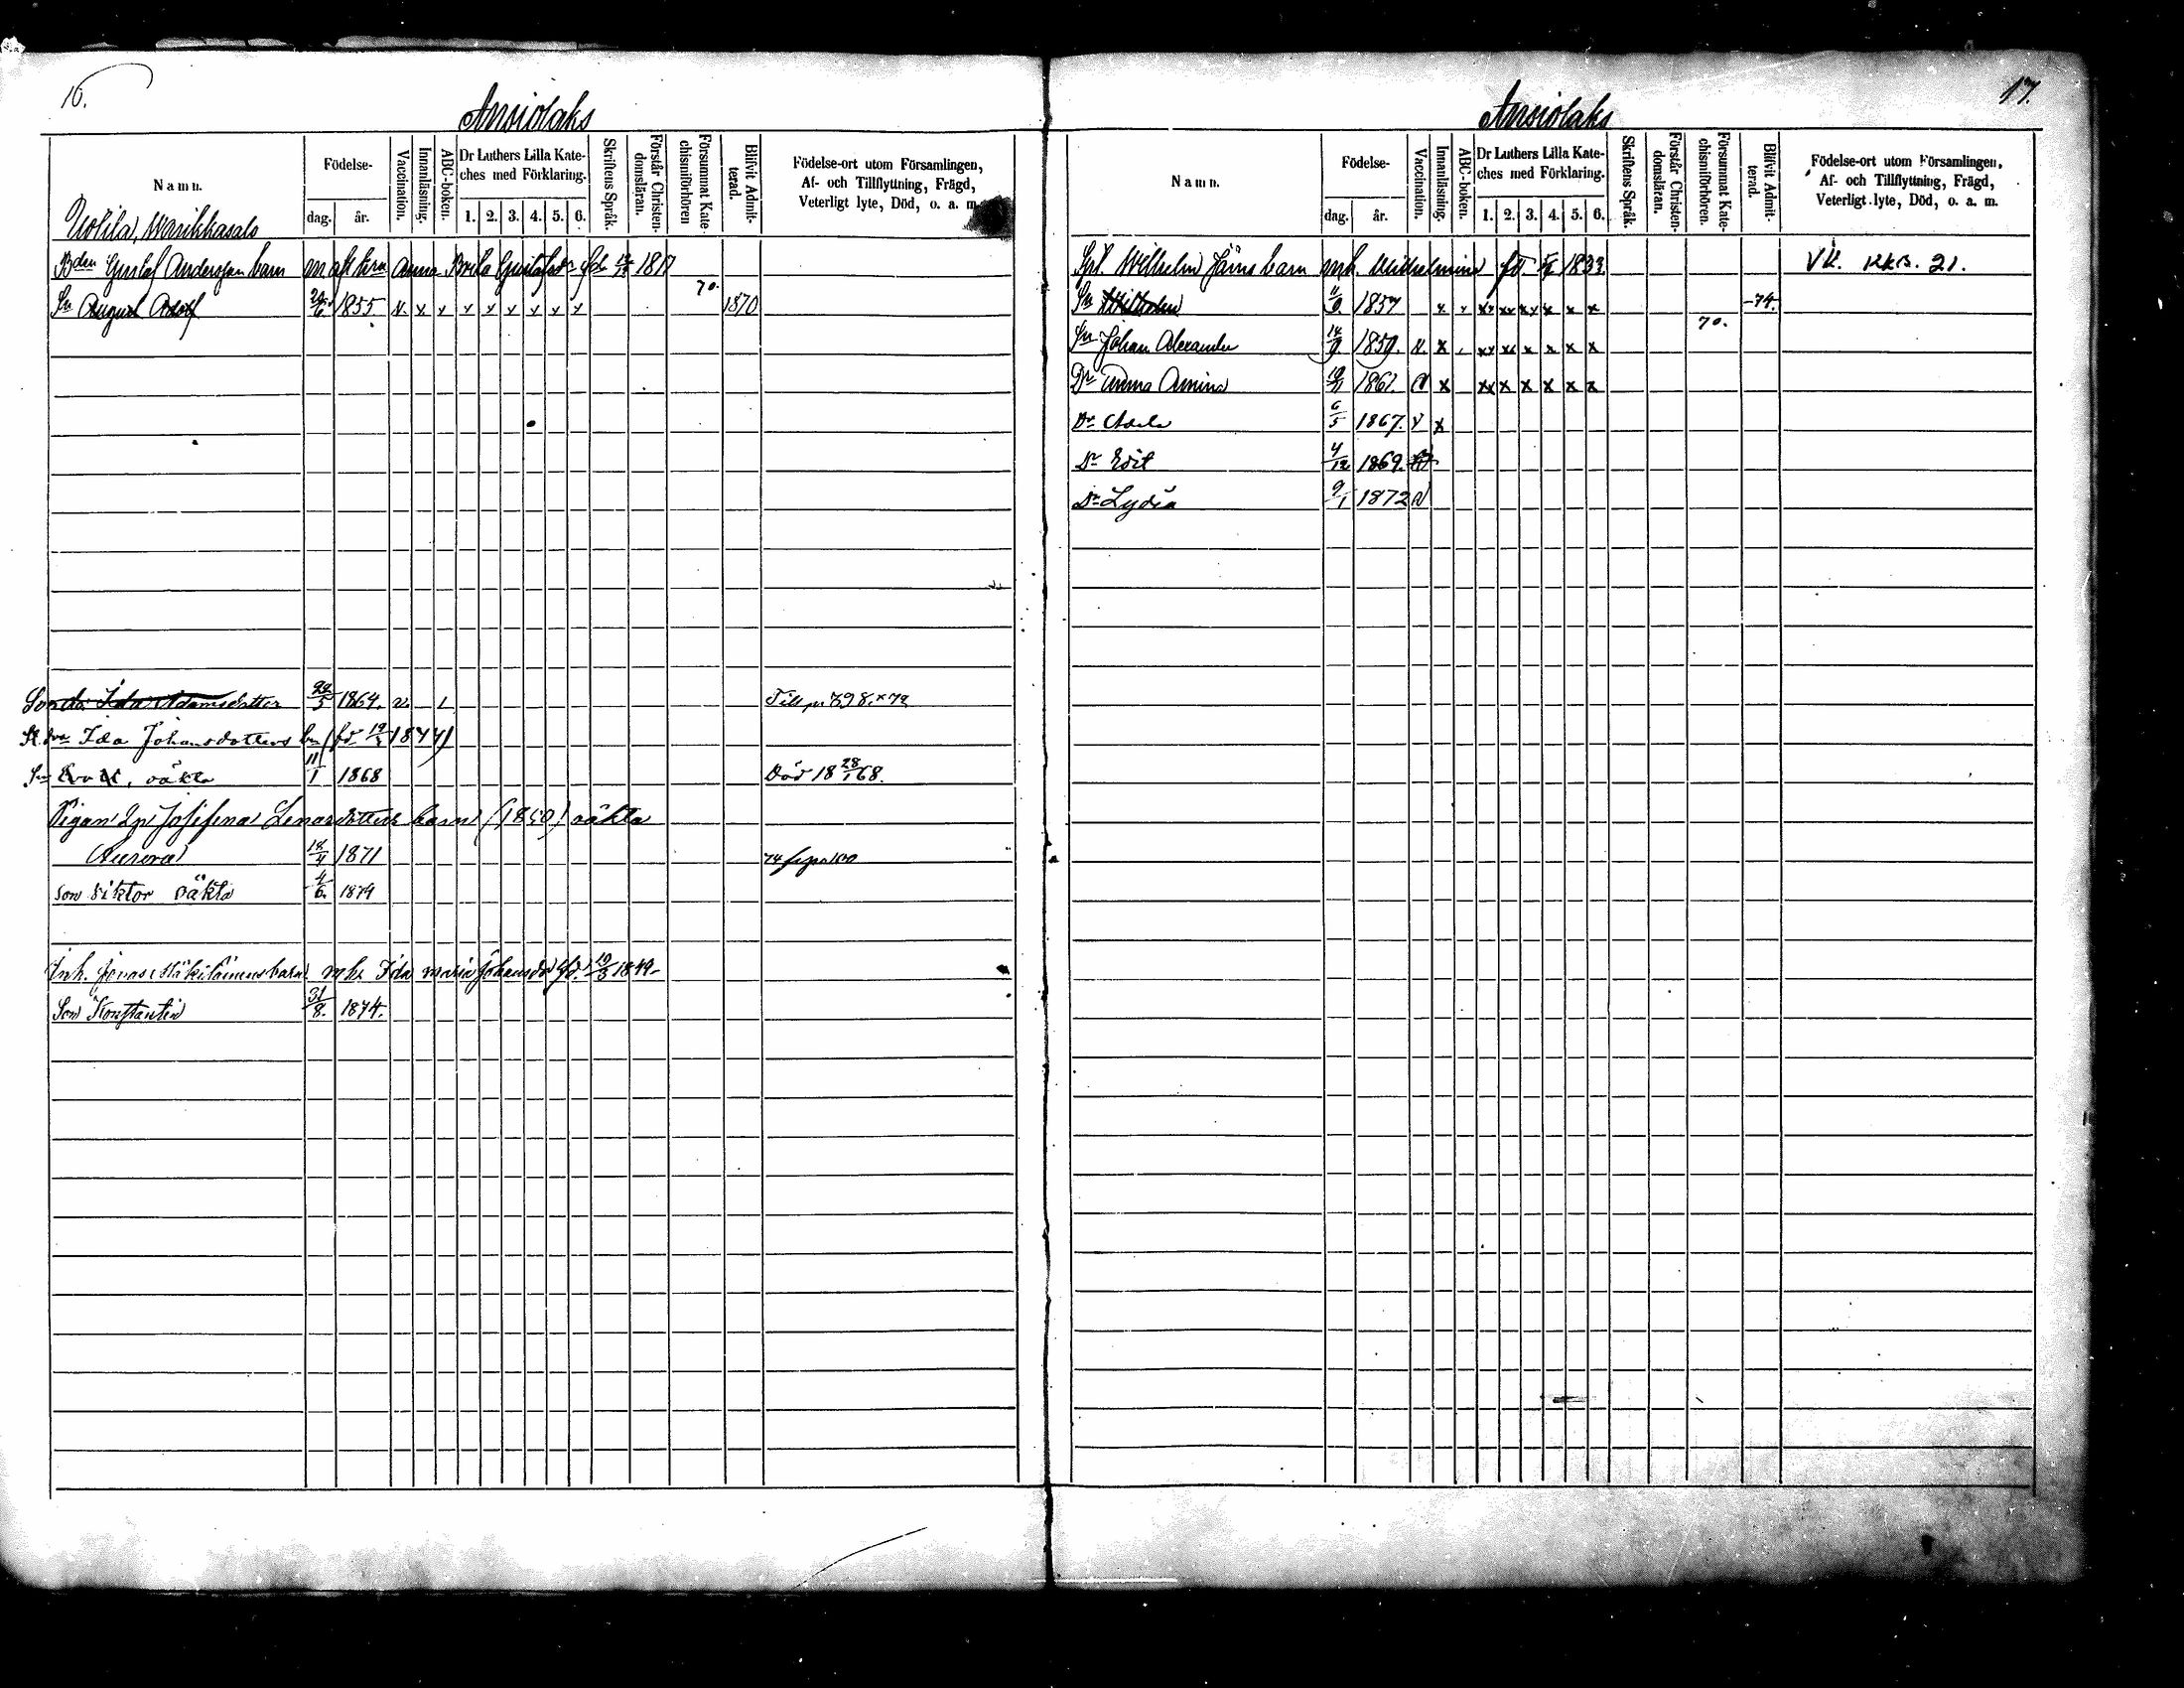 16.
Ansiolaks
Namn.
Födelse-
dag.
år.
Vaccination.
Innanläsning.
ABC-boken.
Dr Luthers Lilla Kate-
ches med Förklaring.
1. 2. 3. 4. 5. 6.
Skriftens Språk.
Förstår Christen-
domsläran.
Försummat Kate-
chismiförhören
Blifvit Admit-
terad.
Födelse-ort utom Församlingen,
Af- och Tillflyttning, Frägd,
Veterligt lyte, Död, o. a. m.
Uotila, Warikkasalo
Bden Gustaf Andersson barn Anna Brita 1817
70.
Sn August Adolf 1855 v. x x x x x x x x 1870
Ida Adamsdotter 22/5 1864. v. 1 Till p. 398. x 72
Ida Johansdotters bn (fd 19/3 1844)
Sn oäkta 11/1 1868 Död 18 28/1 68.
Pigan Josefina Lenasdotters barn (1850) oäkta
Aurora 18/4 1871
son Viktor oäkta 4/6. 1874
Inh. Jonas barn mhu Ida Maria Johansdr fd. 19/3 1849
Son Konstantin 31/8. 1874.
17.
Ansiolaks
Namn.
Födelse-
dag.
år.
Vaccination.
Innanläsning.
ABC-boken.
Dr Luthers Lilla Kate-
ches med Förklaring.
1. 2. 3. 4. 5. 6.
Skriftens Språk.
Förstår Christen-
domsläran.
Försummat Kate-
chismiförhören.
Blifvit Admit-
terad.
Födelse-ort utom Församlingen,
Af- och Tillflyttning, Frägd,
Veterligt lyte, Död, o. a. m.
Wilhelm Järns barn Wilhelmina fd 1833 VK. KKB. 21.
Sn Wilhelm 1857 x xx xx xx x x x -74.
70.
Sn Johan Alexander 14/9. 1859. v. x xx xx x x x x
Dr Amina 1861. v x xx x x x x x
Dr Adela 6/5 1867. v x
Dr Edit 4/12 1869.
Dr Lydia 9/1 1872 v